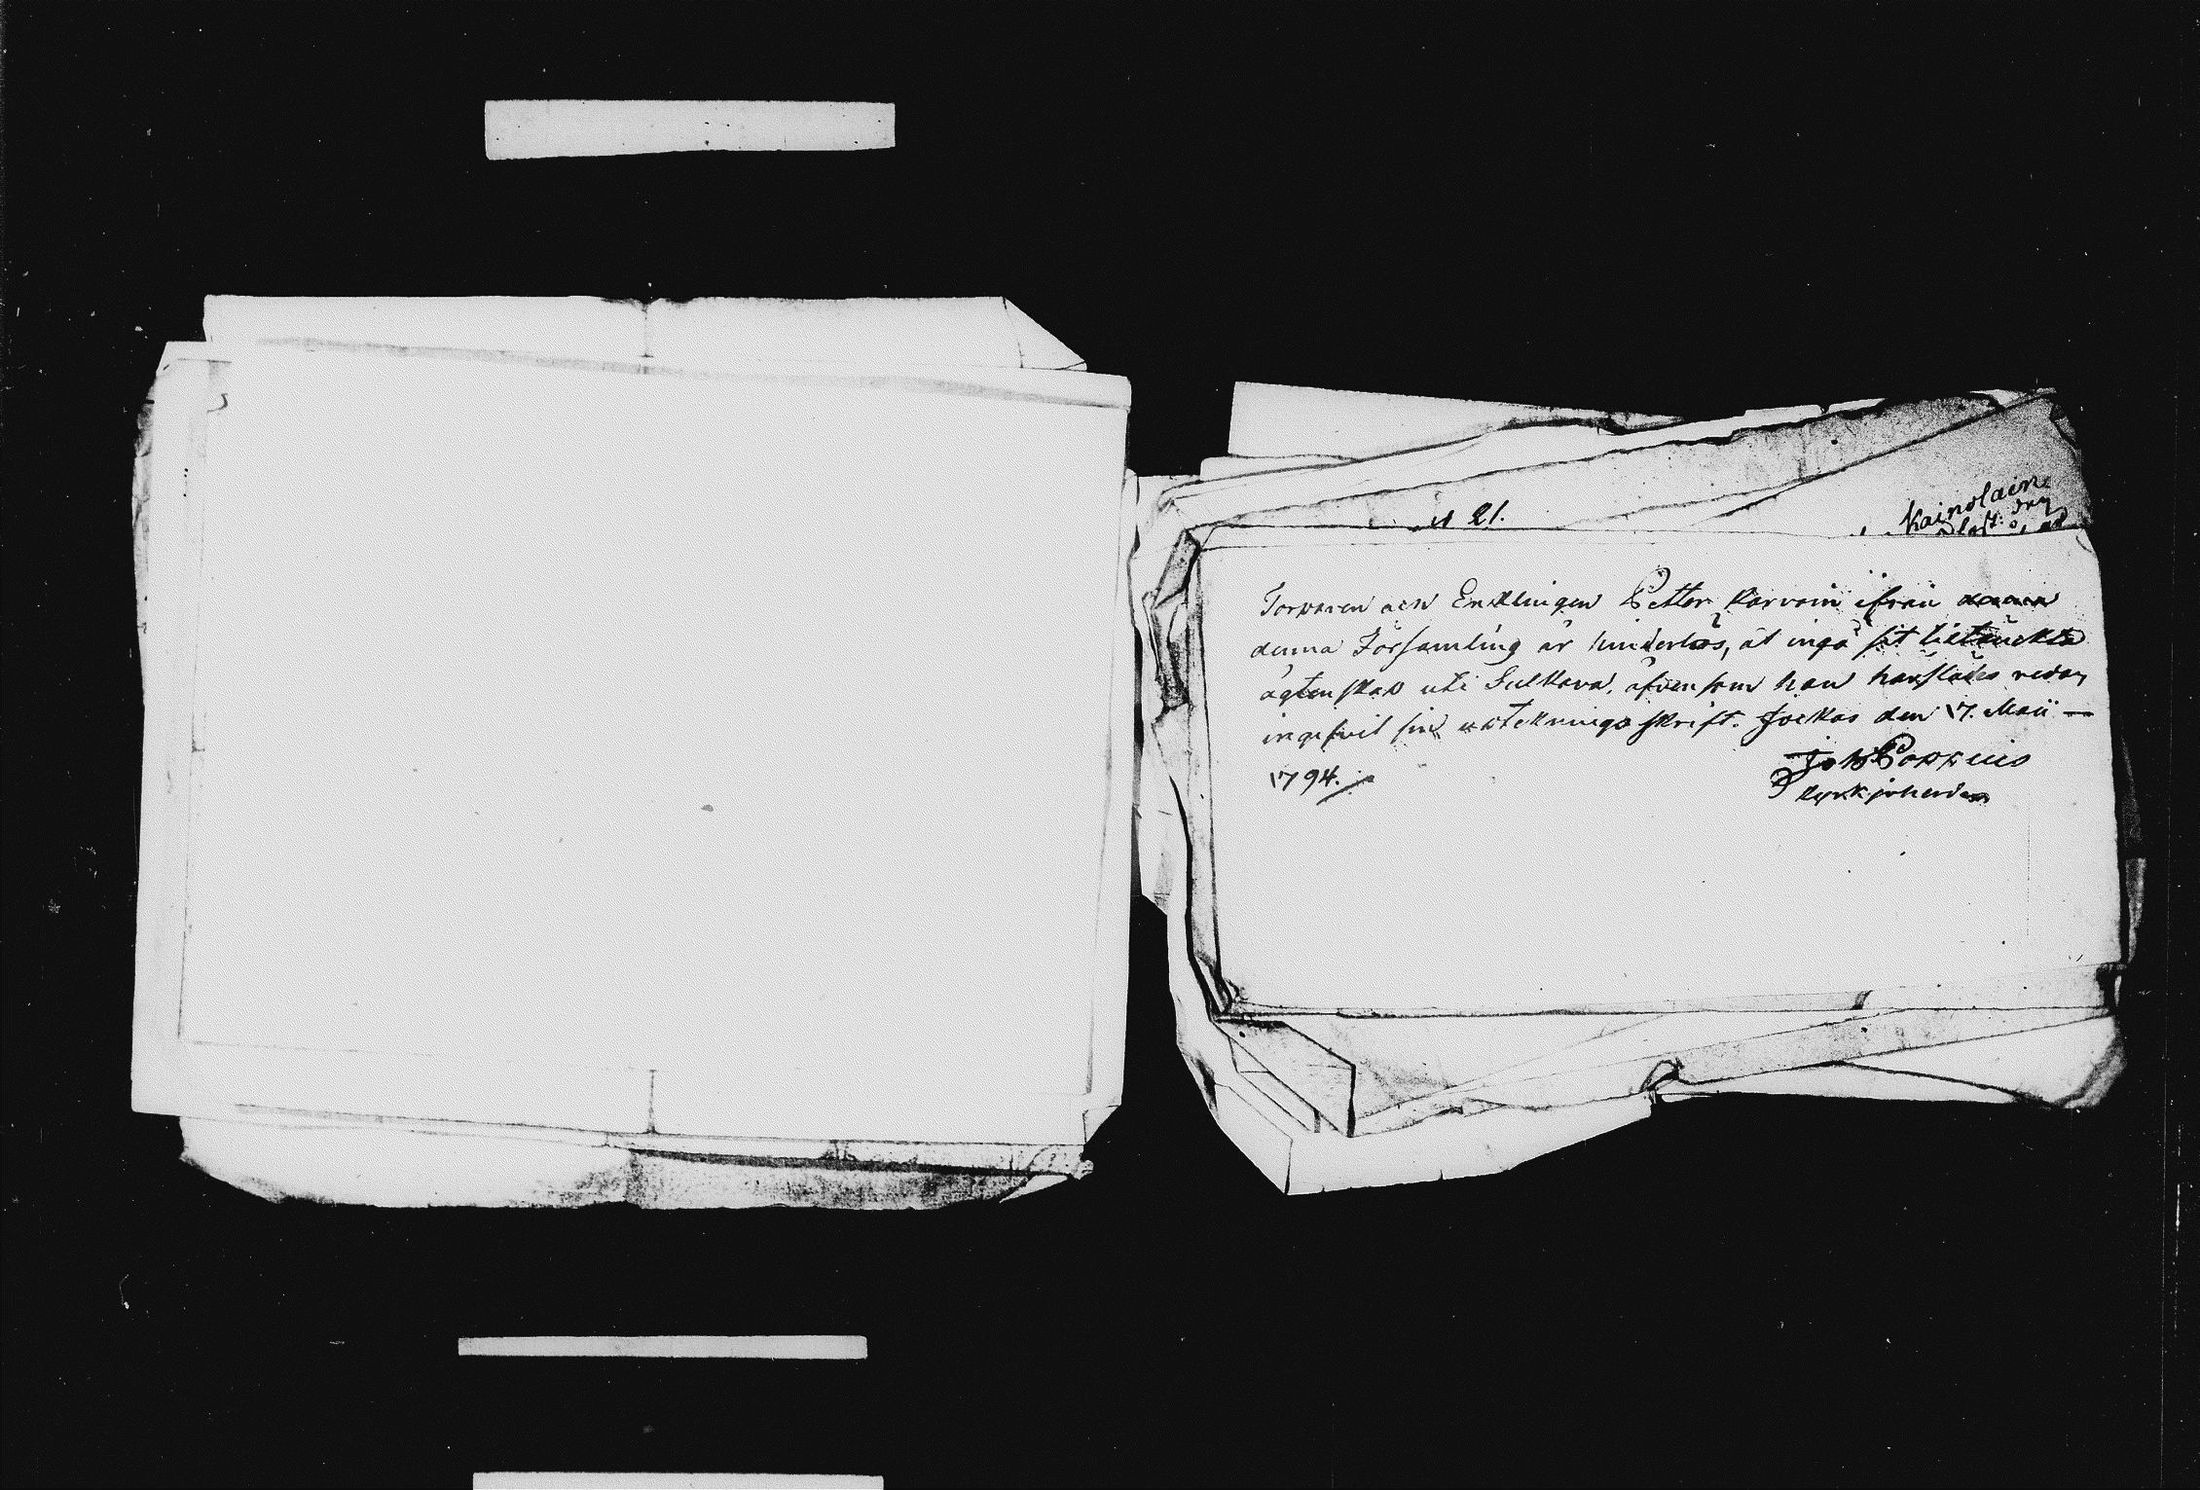 N 21.
Kainolain
Torparen och Encklingen Petter Karvain ifrån
denna Församling är hinderlös, at ingå sit tiltänckta
ägtenskap uti Sulkava, äfvensom han härstädes redan
ingifvit sin skrift. Jockas den 17. Maii —
1794.
Joh Poppius
Kyrkjoherde